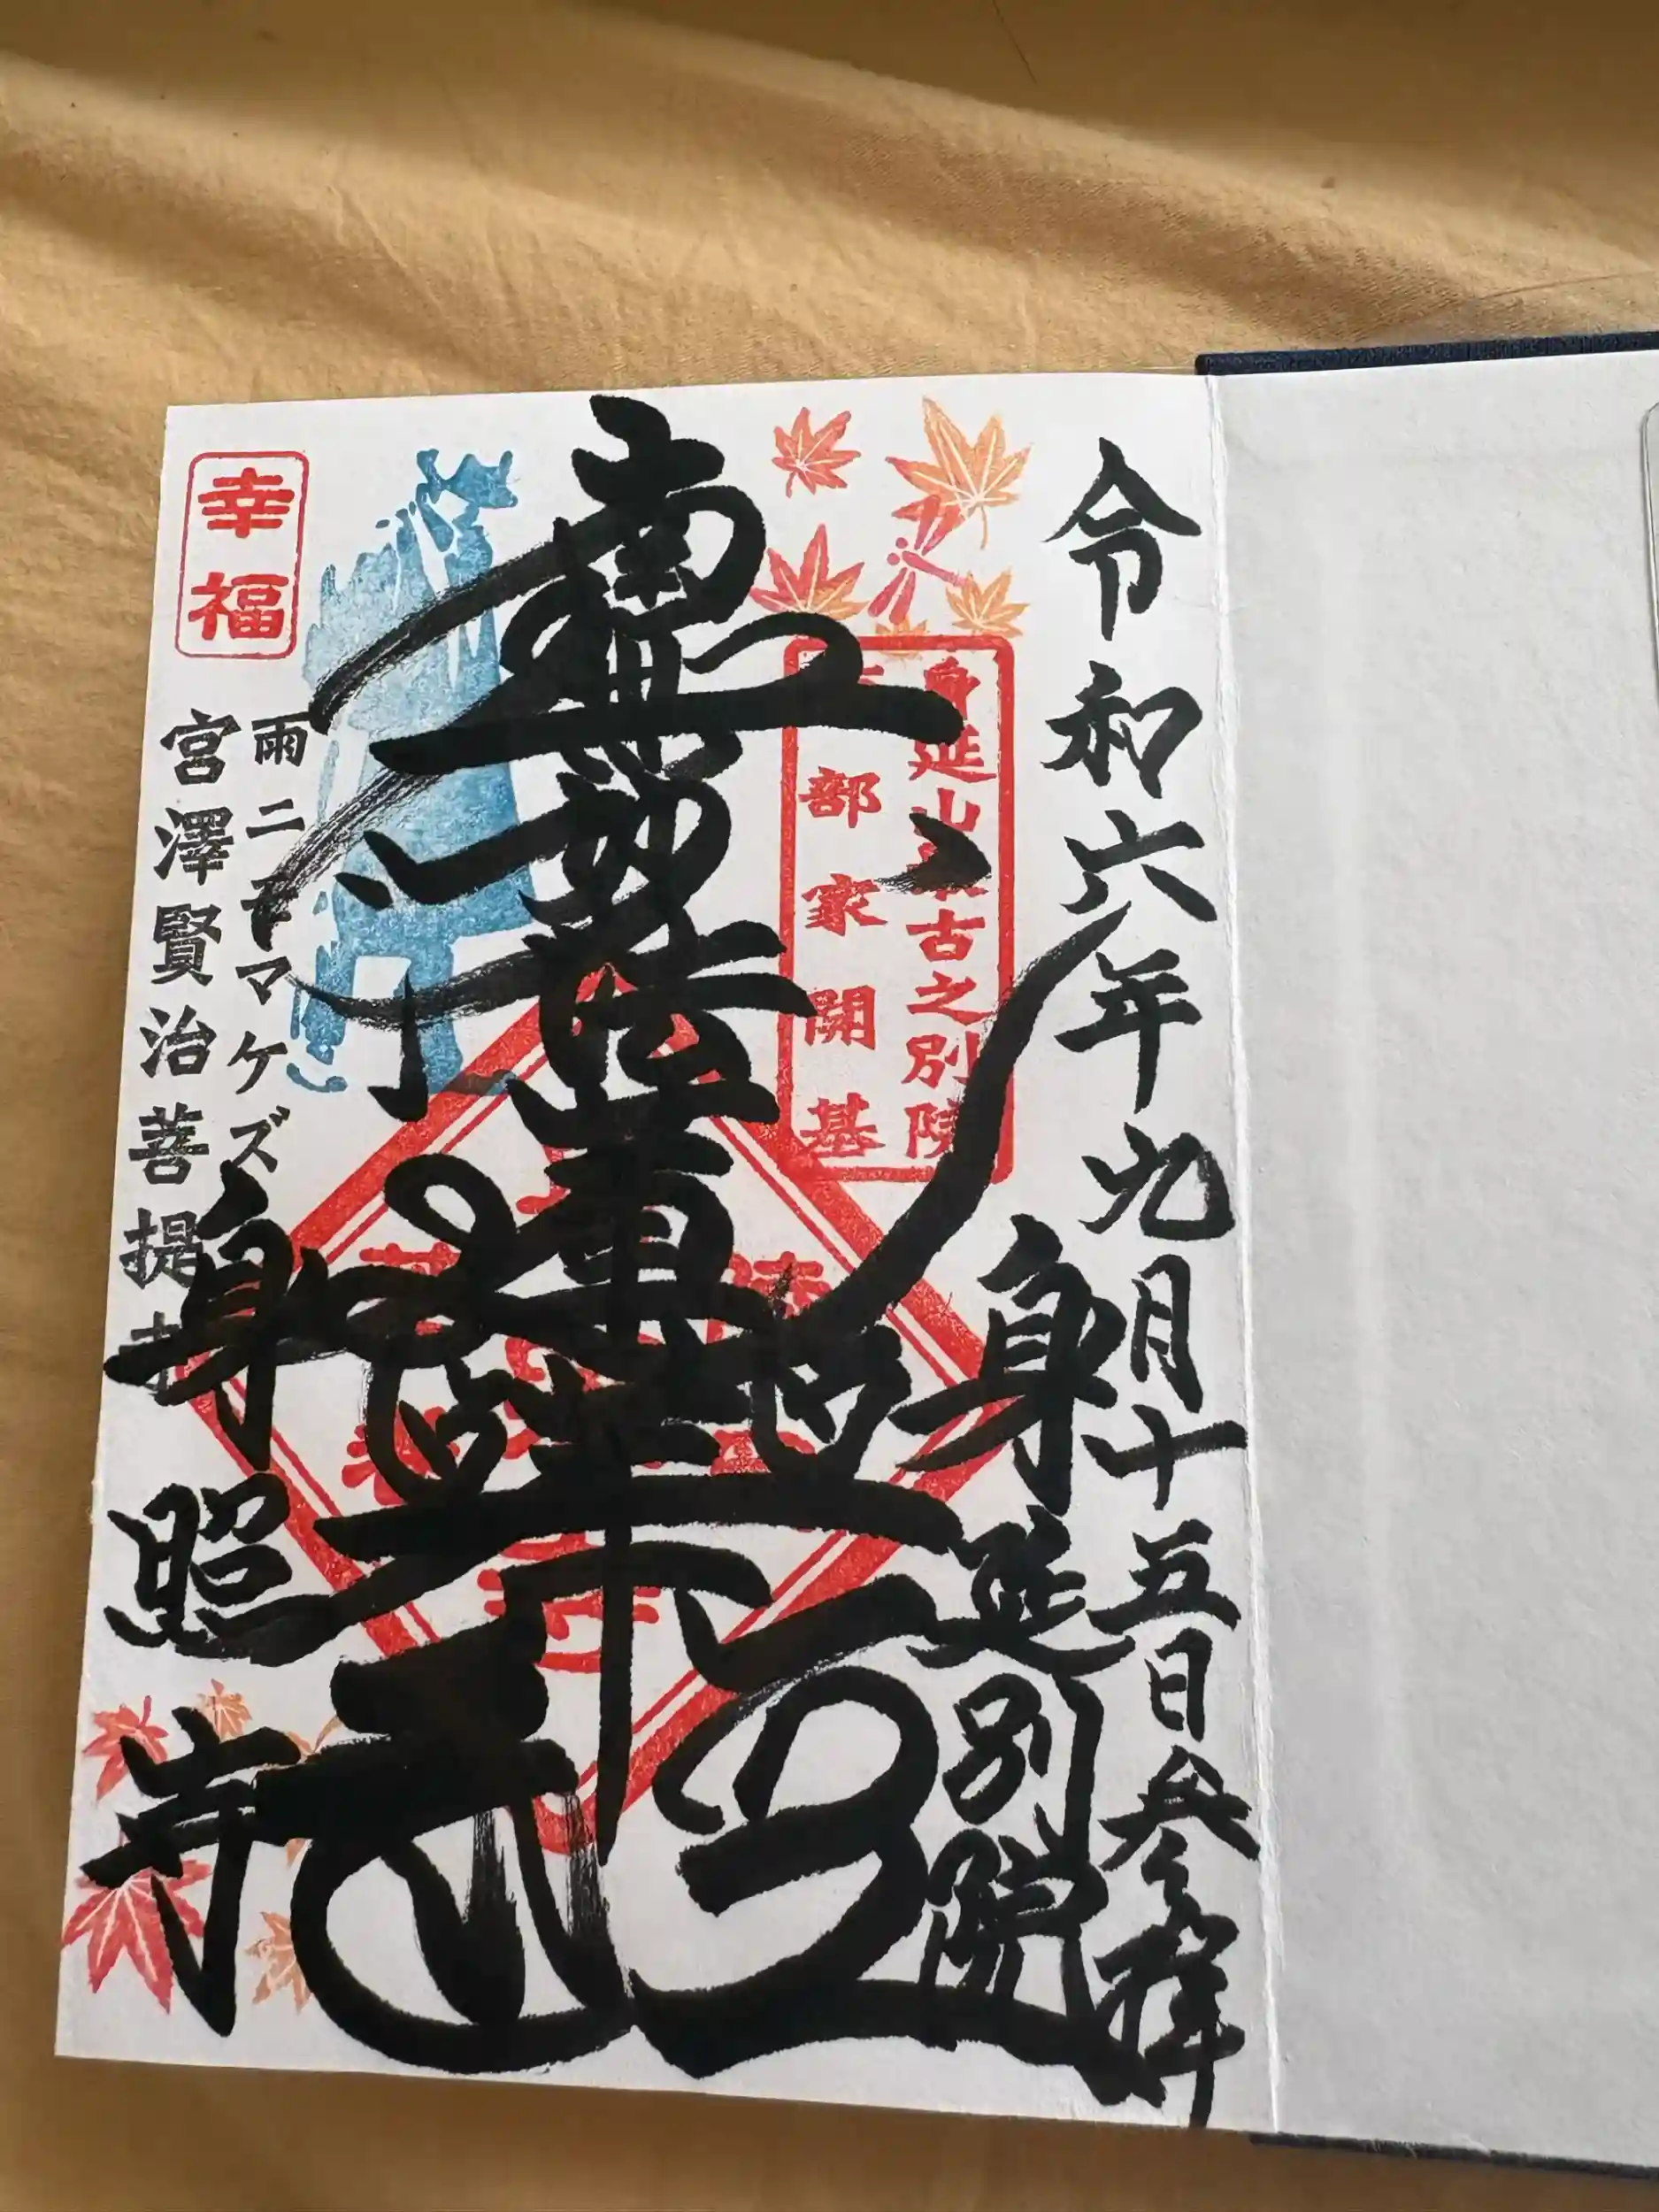 令和六年九月十五日参拝
身延別院
身延山最古之別院
部家開基
南無妙法蓮華経
幸福
雨ニモマケズ
宮澤賢治菩提寺
身照寺